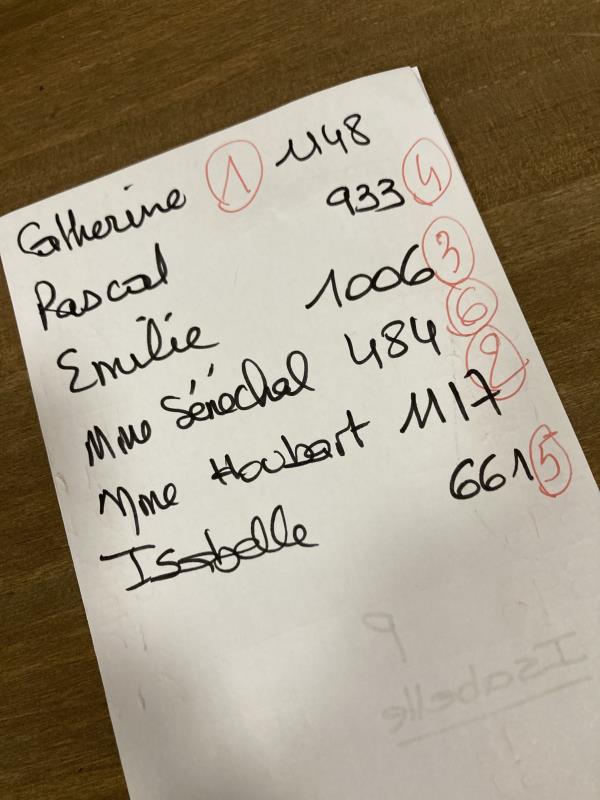 Catherine 1 1148
Pascal 933 4
Emilie 1006 3
Mme Sénéchal 484 6
Mme Houbart 1117 2
Isabelle 661 5
P
Isabelle